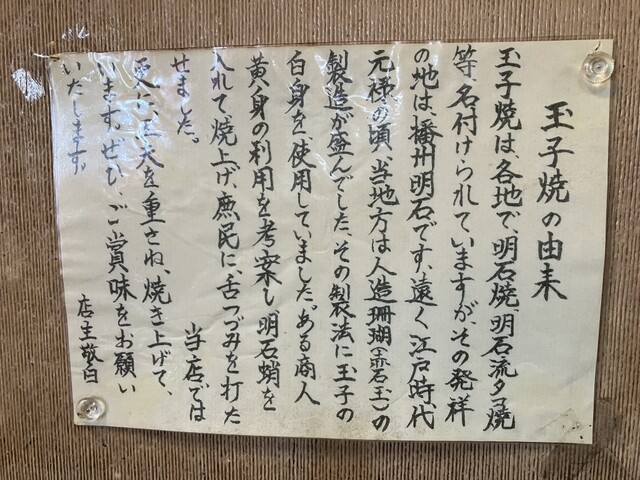 玉子焼の由来
玉子焼は、各地で、明石焼、明石流タコ焼
等、名付けられていますが、その発祥
の地は、播州明石です。遠く江戸時代
元禄の頃、当地方は人造珊瑚(赤石玉)の
製造が盛んでした。その製法に玉子の
白身を、使用していました。ある商人
黄身の利用を考案し明石蛸を
入れて、焼上げ、庶民に、舌つづみを打た
せました。　当店では
更に、工夫を重さね、焼き上げて、
います。ぜひ、ご賞味をお願い
いたします。
店主敬白